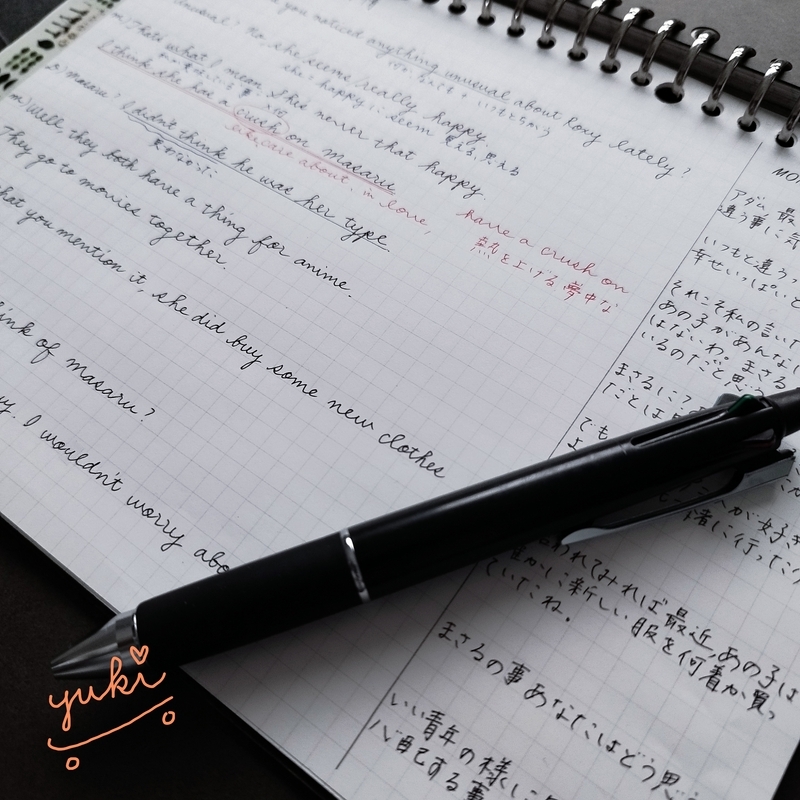 you noticed anything unusual about Roxy lately?
unusual? No, she seems really happy.
m) That's what I mean. She's never that happy.
見える,思える
I think she has a crush on masaru.
care about, in love,
have a crush on
熱を上げる 夢中な
masaru? I didn't think he was her type.
m) Well, they both have a thing for anime.
They go to movies together.
that you mention it, she did buy some new clothes
think of masaru?
I wouldn't worry abo
アダム 最
違う事に気
いつもと違う?
幸せいっぱいと
それこそ私の言いた
あの子があんなに
はないわ。まさる
いるのだと思う
まさるに?
たとは
でも
が女子き
緒に行ったり
言われてみれば最近,あの子は
確かに新しい服を何着か買っ
ていたね。
まさるの事あなたはどう思う
いい青年の様に
心配する事
yuki